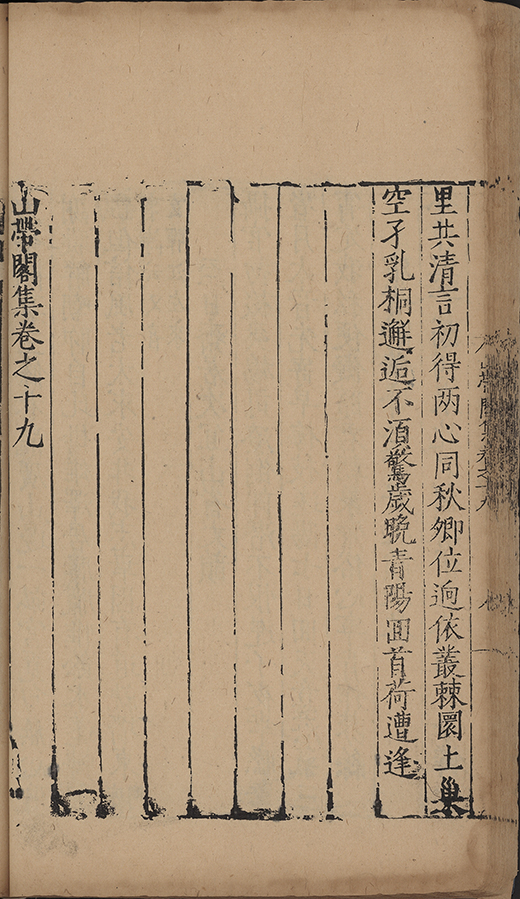 山帶閣集卷之十九
里共清言初得两心同秋卿位逈依叢棘圜土巢
空孑乳桐邂逅不湏驚歲晩青陽囬首荷遭逢
山帶閣集卷之十九